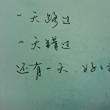 一天路过
一天错过
还有一天，好